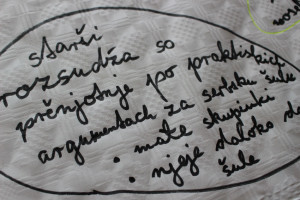 starši
rozsudźa so
prěnjotnje po praktiskich
argumentach za serbsku šulu
• małe skupinki
• njeje daloko do
šule